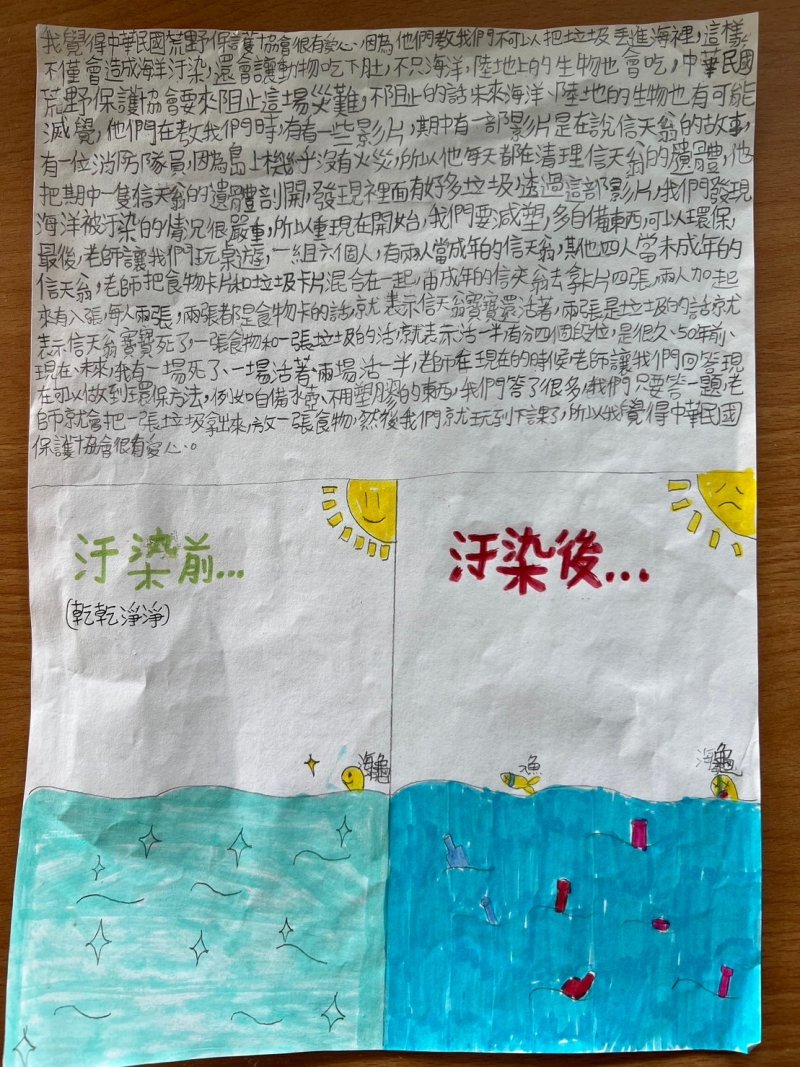 我覺得中華民國荒野保護協會很有愛心，因為他們教我們不可以把垃圾丟進海裡，這樣
不僅會造成海洋汙染，還會讓動物吃下肚，不只海洋，陸地上的生物也會吃，中華民國
荒野保護協會要來阻止這場災難，不阻止的話未來海洋、陸地的生物也有可能
滅覺，他們在教我們時，有看一些影片，期中有一部影片是在說信天翁的故事，
有一位消防隊員，因為島上機乎沒有火災，所以他每天都在清理信天翁的遺體，他
把期中一隻信天翁的遺體剖開，發現裡面有好多垃圾，透過這部影片，我們發現
海洋被汙染的情況很嚴重，所以重現在開始，我們要減塑，多自備東西，可以環保，
最後，老師讓我們玩桌遊，一組六個人，有兩人當成年的信天翁，其他四人當未成年的
信天翁，老師把食物卡片和垃圾卡片混合在一起，由成年的信天翁去拿卡片四張，兩人加起
來有八張，每人兩張，兩張都是食物卡的話，就表示信天翁寶寶還活著，兩張是垃圾的話，就
表示信天翁寶寶死了，一張食物和一張垃圾的活，就表示活一半，有分四個段位，是很久、50年前、
現在、未來，我有一場死了、一場活著、兩場活一半，老師在現在的時候，老師讓我們回答現
在可以做到環保方法，例如自備水壺、不用塑膠的東西，我們答了很多，我們只要答一題，老
師就會把一張垃圾拿出來，放一張食物，然後我們就玩到下課了，所以我覺得中華民國
保護協會很有愛心。
汙染前...
(乾乾淨淨)
汙染後...
海龜
漁
海龜